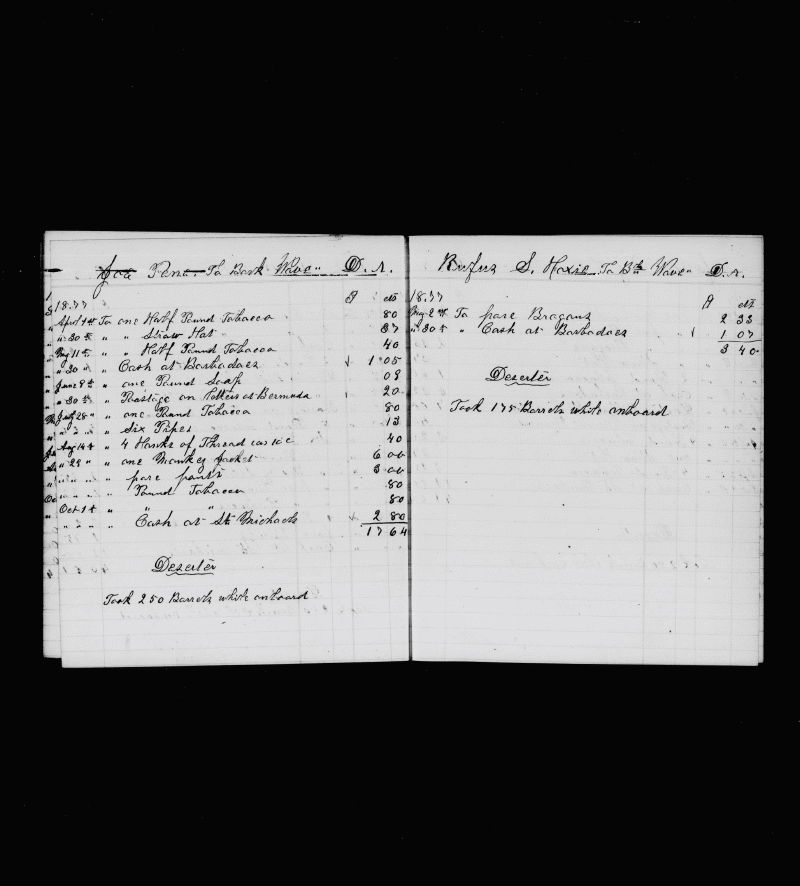 Joe Pena. To Bark Wave" D.r.
$ cts
1877
April 4th To one Half Pound Tobacco 80
" 30th " " Straw Hat 37
May 11th " " Half Pound Tobacco 40
" 30 " " Cash at Barbadoes √ 1 05
June 8th " one Pound Soap 09
" 30th " Postage on letters at Bermuda 20
July 28 " " one Pound Tobacco 80
" " " " Six Pipes 13
Aug 14th " 4 Hanks of Thread 40
" 29 " " one Monkey Jacket 6 00
" " " " pare pants 3 00
" " " " Pound Tobacco 80
Oct 1st " " " 80
" " " " Cash at St Michaels √ 2 80
17 64
Deserter
Took 250 Barrels while onboard
Rufus S. Hoxie To Bk Wave" D.r.
$ cts
1877
May 2nd To pare Brogans 2 33
" 30th " Cash at Barbadoes √ 1 07
3 40
Deserter
Took 175 Barrels while onboard